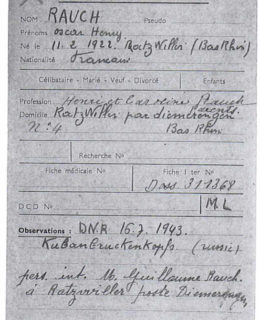 Nom RAUCH Pseudo
Prénoms Oscar Henry
Né le 11.2.1922. RatzWiller (Bas Rhin)
Nationalité Francaise
Célibataire - Marié - Veuf - Divorcé Enfants
Profession Henri et Caroline Rauch
Parents.
Domicile RatzWiller par diemeringen
N°4 Bas Rhin
Recherche N°
Fiche médicale N° Fiche 1 ter
Doss. 311368
DCD N° ML
Observations : DNR 16.7.1943.
KubanBruckenkopfs (russie)
pers. int. M. Guillaume Rauch.
à Ratzwiller poste Diemeringen